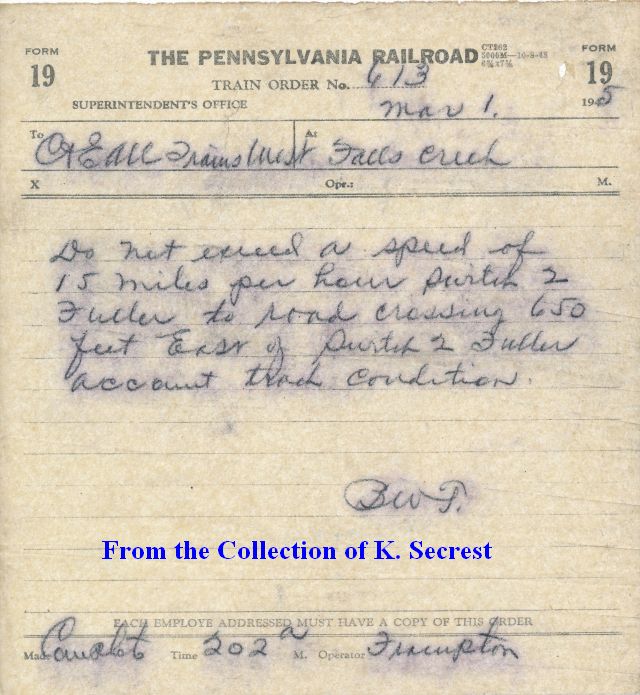 FORM 19
THE PENNSYLVANIA RAILROAD
CT262
FORM 19
TRAIN ORDER No. 613
SUPERINTENDENT'S OFFICE
Mar 1. 1945
To C&E All Trains West At Falls Creek
X Opr.: M.
Do not exceed a speed of
15 miles per hour Switch 2
Fuller to road crossing 650
feet East of Switch 2 Fuller
account track condition.
From the Collection of K. Secrest
EACH EMPLOYE ADDRESSED MUST HAVE A COPY OF THIS ORDER
Made Complete Time 202 a M. Operator Frampton